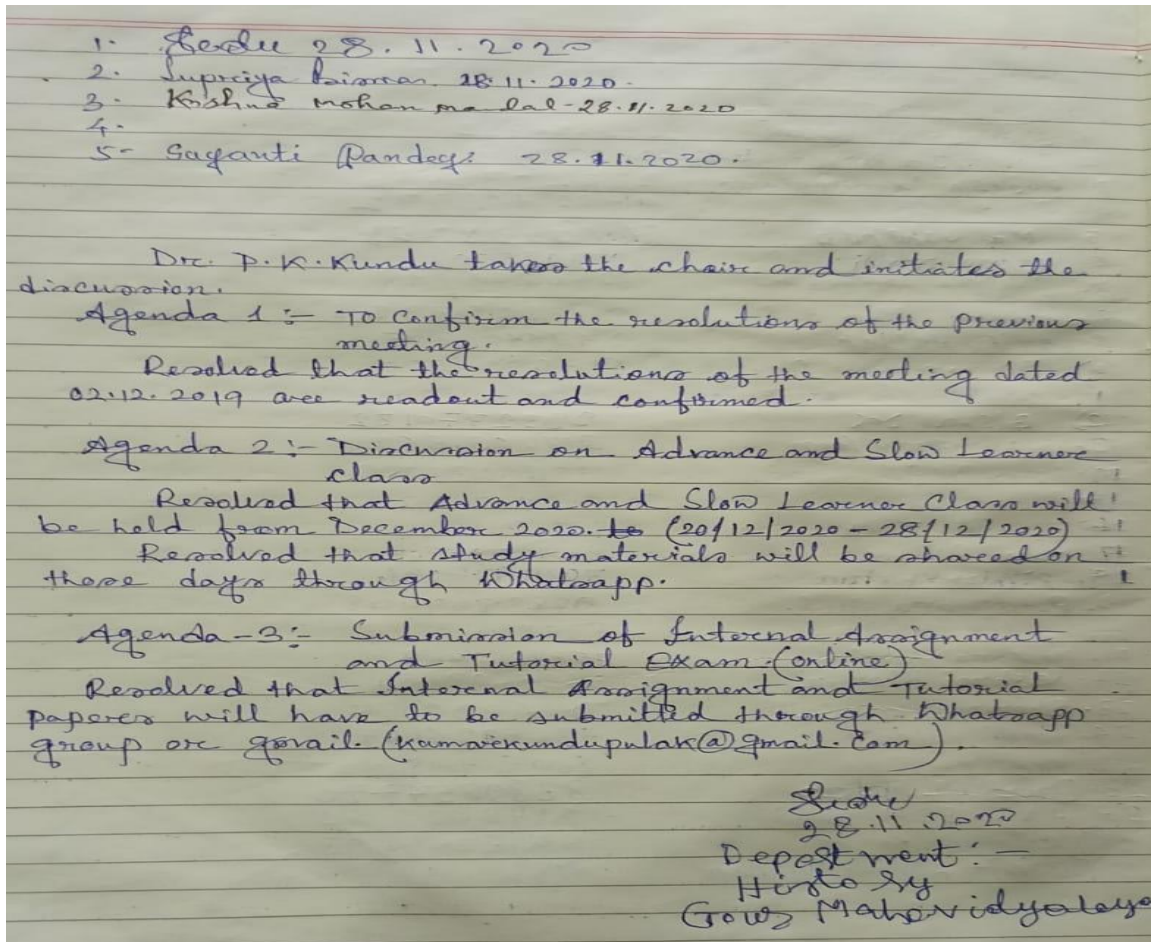 1. 28.11.2020
2. Supriya 28.11.2020.
3. Krishna Mohan 28.11.2020
4.
5- 28.11.2020.
Dr. P.K. Kundu takes the chair and initiates the
discussion.
Agenda 1 :- To confirm the resolutions of the previous
meeting.
Resolved that the resolutions of the meeting dated
02.12.2019 are readout and confirmed.
Agenda 2 :- Discussion on Advance and Slow Learner
class
Resolved that Advance and Slow Learner Class will
be held from December 2020. to (20/12/2020 - 28/12/2020)
Resolved that study materials will be shared on
those days through Whatsapp.
Agenda - 3 :- Submission of Internal Assignment
and Tutorial Exam. (online)
Resolved that Internal Assignment and Tutorial
papers will have to be submitted through Whatsapp
group or gmail. (kumarkundupulak@gmail.com).
28.11.2020
Depastment :-
History
Mahavidyalaya